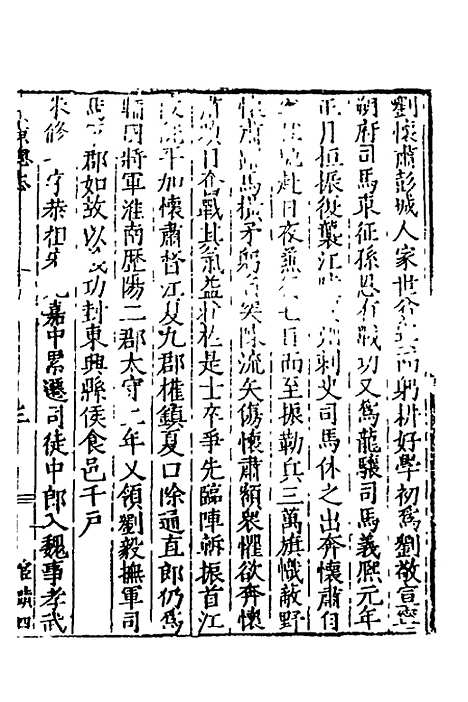 劉懷肅彭城人家世貧而躬耕好學初為劉敬宣寧
朔府司馬東征孫恩有戰功又為龍驤司馬義熙元年
正月桓振復襲江陵州刺史司馬休之出奔懷肅自
赴日夜兼行七日而至振勒兵三萬旗幟蔽野
馬橫矛躬突陳流矢傷懷肅額眾懼欲奔懷
肅瞋目奮戰其氣益壯於是士卒爭先臨陣斬振首江
陵平加懷肅督江夏九郡權鎮夏口除通直郎仍為
輔國將軍淮南歷陽二郡太守二年又領劉毅撫軍司
馬郡如故以功封東興縣侯食邑千戶
朱修字恭祖嘉中累遷司徒中郎入魏事孝武
宦蹟四